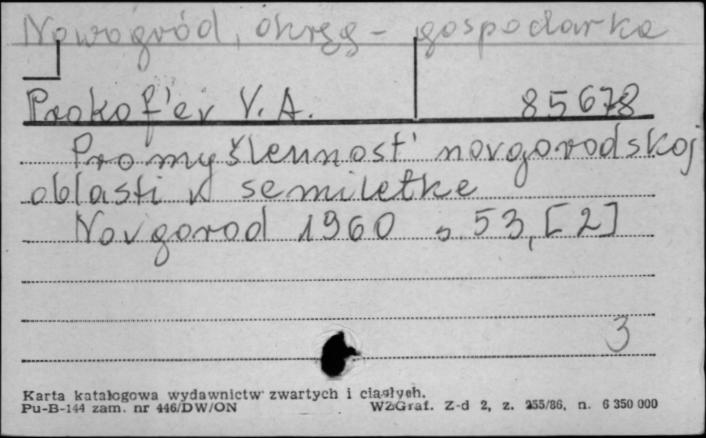 Nowogród, okręg - gospodarka
Prokof'ev V. A. 85678
Promyšlennost' novgorodskoj
oblasti v semiletke
Novgorod 1960 s. 53, [2]
3
Karta katalogowa wydawnictw zwartych i ciągłych.
Pu-B-144 zam. nr 446/DW/ON WZGraf. Z-d 2, z. 255/86, n. 6 350 000